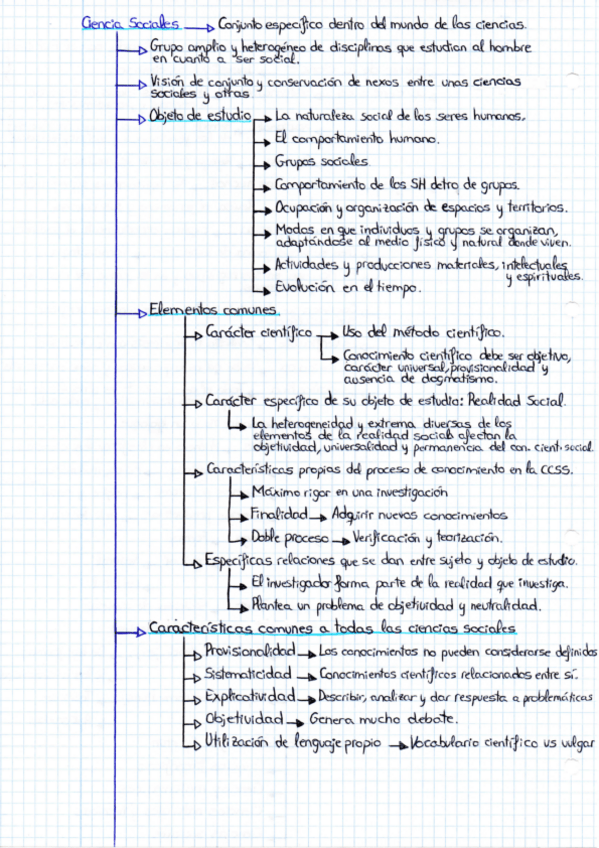 Ciencia Sociales → Conjunto específico dentro del mundo de las ciencias.
Grupo amplio y heterogéneo de disciplinas que estudian al hombre
en cuanto a ser social.
Visión de conjunto y conservación de nexos entre unas ciencias
sociales y otras
Objeto de estudio → La naturaleza social de los seres humanos.
El comportamiento humano.
Grupos sociales
Comportamiento de los SH detro de grupos.
Ocupación y organización de espacios y territorios.
Modos en que individuos y grupos se organizan,
adaptándose al medio físico y natural donde viven.
Actividades y producciones materiales, intelectuales
y espirituales.
Evolución en el tiempo.
Elementos comunes.
Carácter científico → Uso del método científico.
Conocimiento científico debe ser objetivo,
carácter universal, provisionalidad y
ausencia de dogmatismo.
Carácter específico de su objeto de estudio: Realidad Social.
La heterogeneidad y extrema diversas de los
elementos de la realidad social afectan la
objetividad, universalidad y permanencia del con. cient. social.
Características propias del proceso de conocimiento en la CCSS.
Máximo rigor en una investigación
Finalidad → Adquirir nuevos conocimientos
Doble proceso → Verificación y teorización.
Específicas relaciones que se dan entre sujeto y objeto de estudio.
El investigador forma parte de la realidad que investiga.
Plantea un problema de objetividad y neutralidad.
Características comunes a todas las ciencias sociales
Provisionalidad → Los conocimientos no pueden considerarse definidos
Sistematicidad → Conocimientos científicos relacionados entre sí.
Explicatividad → Describir, analizar y dar respuesta a problemáticas
Objetividad → Genera mucho debate.
Utilización de lenguaje propio → Vocabulario científico vs vulgar